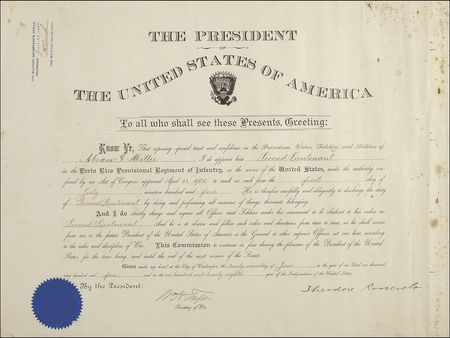 THE PRESIDENT
OF
THE UNITED STATES OF AMERICA
To all who shall see these Presents, Greeting:
Know Ye, That reposing special trust and confidence in the Patriotism, Valor, Fidelity, and Abilities of
I do appoint him Second Lieutenant
in the Porto Rico Provisional Regiment of Infantry, in the service of the United States, under the authority con-
ferred by an Act of Congress approved April 23, 1904 to rank as such from the first day of
July nineteen hundred and five. He is therefore carefully and diligently to discharge the duty
of Second Lieutenant by doing and performing all manner of things thereunto belonging.
And I do strictly charge and require all Officers and Soldiers under his command to be obedient to his orders as
Second Lieutenant. And he is to observe and follow such orders and directions, from time to time, as he shall receive
from me, or the future President of the United States of America, or the General or other superior Officers set over him, according
to the rules and discipline of War. This Commission to continue in force during the pleasure of the President of the United
States, for the time being, and until the end of the next session of the Senate.
Given under my hand at the City of Washington, the day of June in the year of our Lord one thousand
nine hundred and five and in the one hundred and twenty ninth year of the Independence of the United States.
By the President:
Wm H Taft
Secretary of War.
Theodore Roosevelt
THE MILITARY SECRETARY'S OFFICE
THE MILITARY SECRETARY